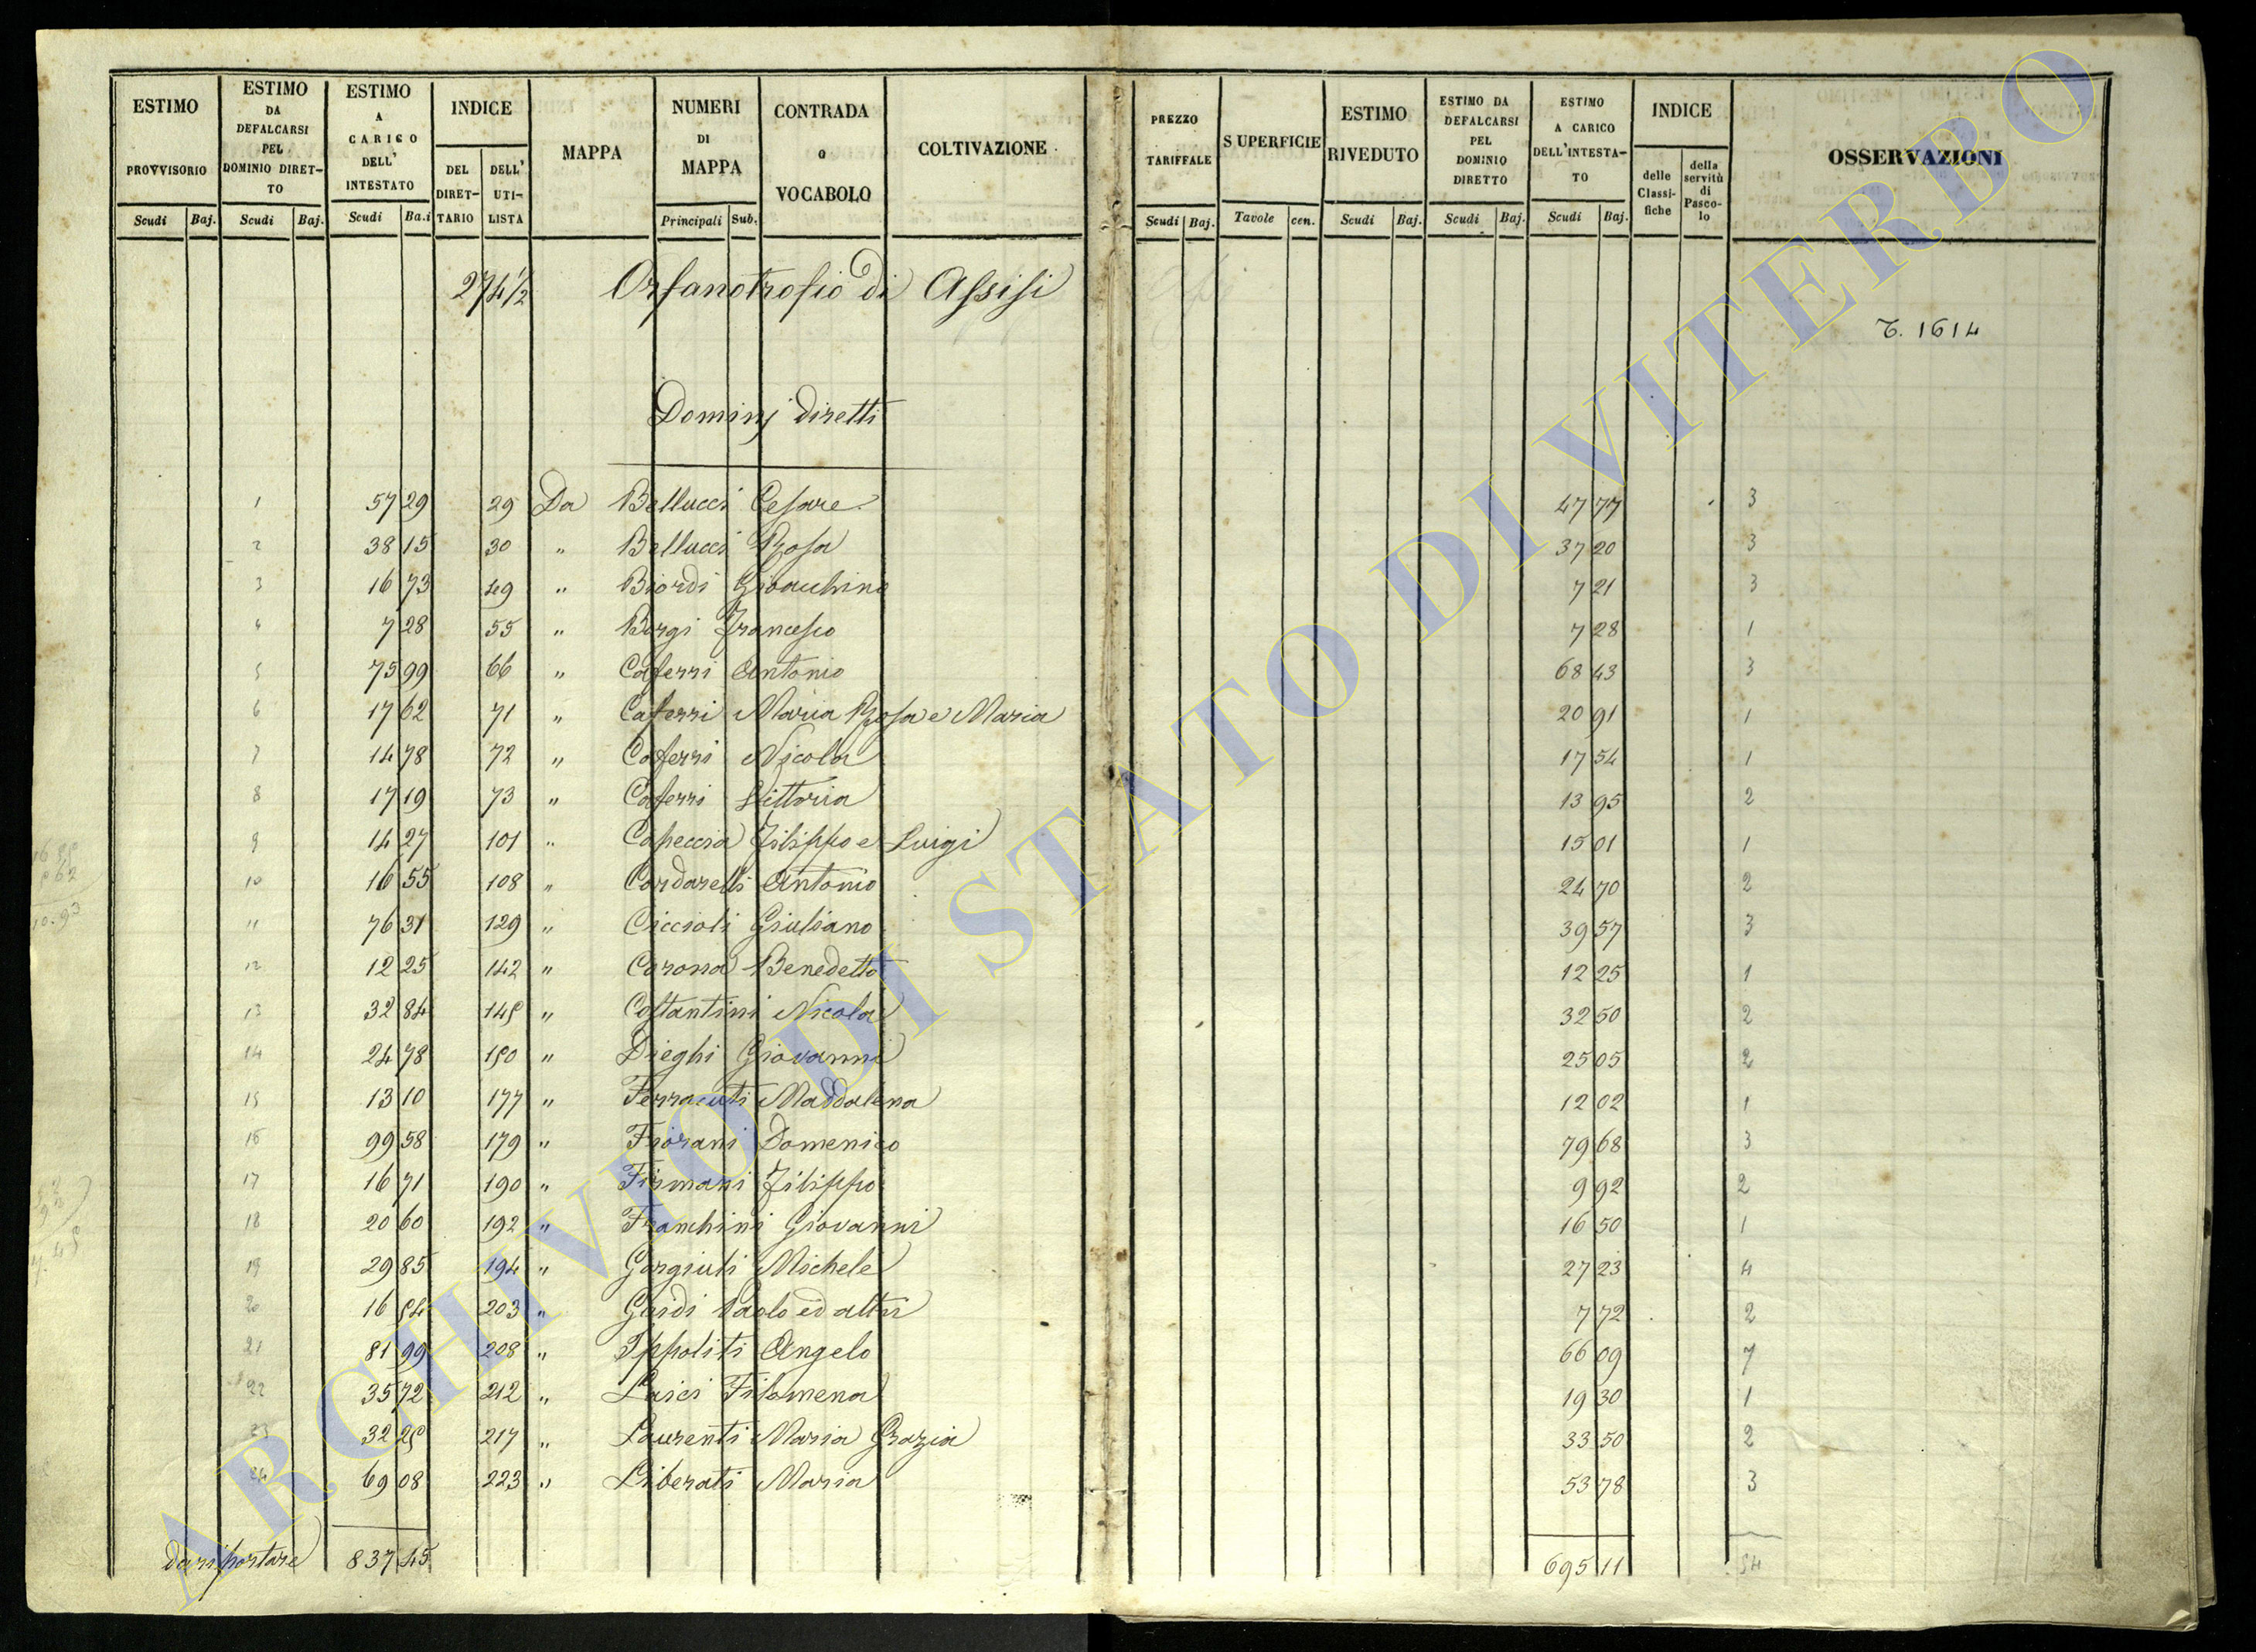 ESTIMO PROVVISORIO Scudi Baj.
ESTIMO DA DEFALCARSI PEL DOMINIO DIRETTO Scudi Baj.
ESTIMO A CARICO DELL' INTESTATO Scudi Ba.i
INDICE DEL DIRETTARIO DELL' UTILISTA
MAPPA
NUMERI DI MAPPA Principali Sub.
CONTRADA O VOCABOLO
COLTIVAZIONE
PREZZO TARIFFALE Scudi Baj.
SUPERFICIE Tavole cen.
ESTIMO RIVEDUTO Scudi Baj.
ESTIMO DA DEFALCARSI PEL DOMINIO DIRETTO Scudi Baj.
ESTIMO A CARICO DELL'INTESTATO Scudi Baj.
INDICE delle Classifiche della servitù di Pascolo
OSSERVAZIONI
274 1/2 Orfanotrofio di Assisi
T. 1614
Dominj diretti
1 57 29 29 Da Bellucci Cesare 47 77 3
2 38 15 30 " Bellucci Rosa 37 20 3
3 16 73 49 " Biordi Gioacchino 7 21 3
4 7 28 55 " Borgi Francesco 7 28 1
5 75 99 66 " Caferri Antonio 68 43 3
6 17 62 71 " Caferri Maria Rosa e Maria 20 91 1
7 14 78 72 " Caferri Nicola 17 54 1
8 17 19 73 " Caferri Vittoria 13 95 2
9 14 27 101 " Capeccia Filippo e Luigi 15 01 1
10 16 55 108 " Cardarelli Antonio 24 70 2
11 76 31 129 " Ciccioli Giuliano 39 57 3
12 12 25 142 " Corona Benedetto 12 25 1
13 32 84 145 " Costantini Nicola 32 50 2
14 24 78 150 " Dieghi Giovanni 25 05 2
15 13 10 177 " Ferracuti Maddalena 12 02 1
16 99 58 179 " Fiorani Domenico 79 68 3
17 16 71 190 " Firmani Filippo 9 92 2
18 20 60 192 " Franchini Giovanni 16 50 1
19 29 85 194 " Gargiuli Michele 27 23 4
20 16 54 203 " Guidi Paolo ed altri 7 72 2
21 81 99 208 " Ippoliti Angelo 66 09 7
22 35 72 212 " Laici Filomena 19 30 1
23 32 25 217 " Laurenti Maria Grazia 33 50 2
24 69 08 223 " Liberati Maria 53 78 3
da riportare 837 45 695 11 54
ARCHIVIO DI STATO DI VITERBO